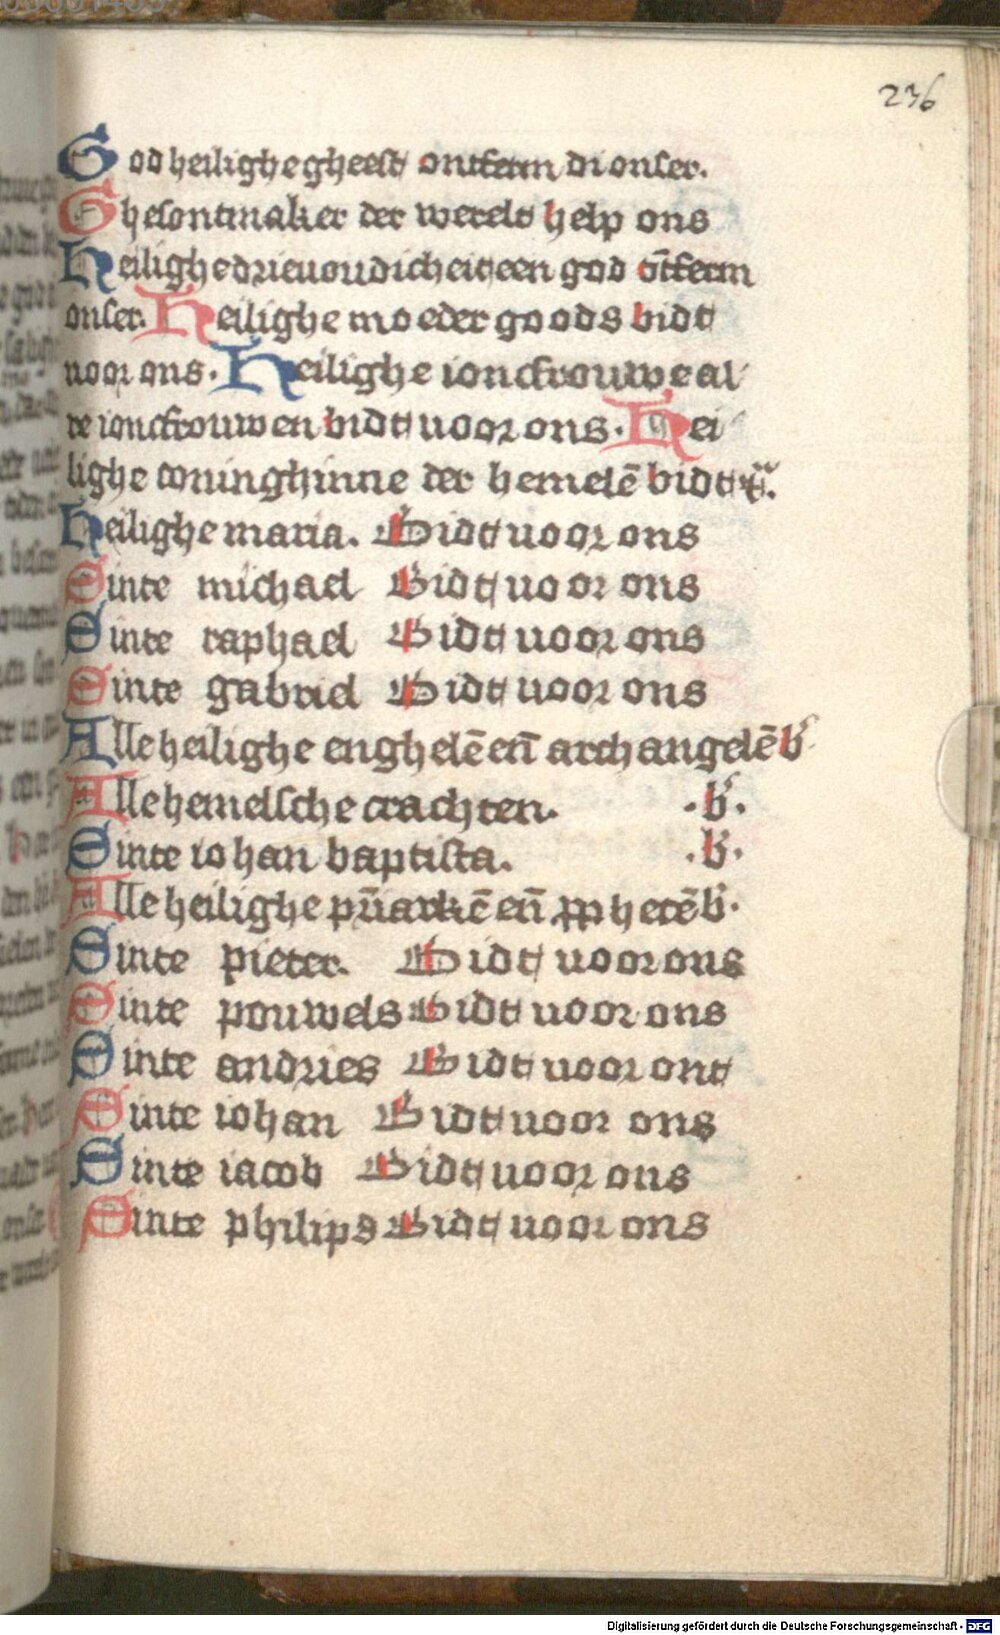 236
God heilighe gheest ontferm di onser.
Ghesontmaker der werelt help ons
Heilighe drieuoudicheit een god ōtferm
onser. Heilighe moeder goods bidt
uoor ons. Heilighe ioncfrouwe al
re ioncfrouwen bidt uoor ons. Hei
lighe coninghinne der hemelē bidt
Heilighe maria. Bidt uoor ons
Sinte michael Bidt uoor ons
Sinte raphael Bidt uoor ons
Sinte gabriel Bidt uoor ons
Alle heilighe enghelē en̄ archangelē b
Alle hemelsche crachten. .b.
Sinte iohan baptista. .b.
Alle heilighe en̄ b.
Sinte pieter. Bidt uoor ons
Sinte pouwels Bidt uoor ons
Sinte andries Bidt uoor ont
Sinte iohan Bidt uoor ons
Sinte iacob Bidt uoor ons
Sinte philips Bidt uoor ons
Digitalisierung gefördert durch die Deutsche Forschungsgemeinschaft - DFG